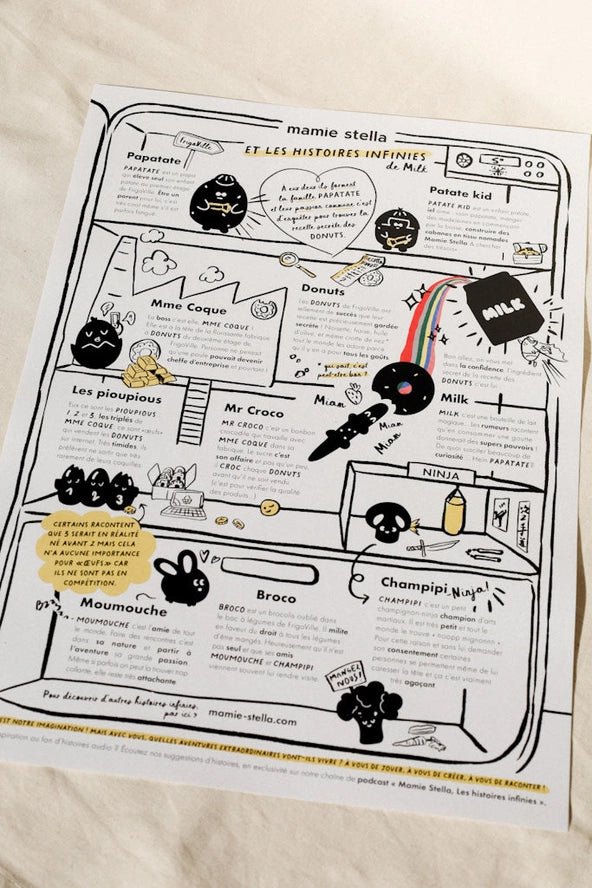 mamie stella
ET LES HISTOIRES INFINIES
de Milk
FrigoVille
Papatate
PAPATATE est un papa
qui élève seul son enfant
patate au premier étage
de FrigoVille. Être un
parent solo, c'est
A eux deux ils forment
la famille PAPATATE
et leur passion commune, c'est
d'enquêter pour trouver la
recette secrète des
DONUTS.
Patate kid
PATATE KID est un enfant patate
construire des
cabanes en tissu nomades
Mamie Stella
Mme Coque
La boss c'est elle, MME COQUE !
Elle est à la tête de la florissante fabrique
à DONUTS du deuxième étage de
FrigoVille. Personne ne pensait
qu'une poule pouvait devenir
cheffe d'entreprise et pourtant !
Donuts
Les DONUTS de FrigoVille ont
tellement de succès que leur
recette est précieusement gardée
secrète ! Noisette, fraise, huile
d'olive, et même crotte de nez*
tout le monde les adore parce
qu'il y en a pour tous les goûts.
* qui sait, c'est
peut-être bon ?
MILK
Bon allez, on vous met
dans la confidence, l'ingrédient
secret de la recette des
DONUTS c'est lui.
Les pioupious
Eux ce sont les PIOUPIOUS
1, 2 et 3, les triplés de
MME COQUE, ce sont eux
qui vendent les DONUTS
sur internet. Très timides, ils
préfèrent ne sortir que très
rarement de leurs coquilles.
1 2 3
Mr Croco
MR CROCO c'est un bonbon
crocodile qui travaille avec
MME COQUE dans sa
fabrique. Le sucre, c'est
son affaire et pas qu'un peu,
il CROC chaque DONUTS
avant qu'il ne soit vendu
(c'est pour vérifier la qualité
des produits...)
Miam
Miam
Miam
Milk
MILK c'est une bouteille de lait
magique... les rumeurs racontent
qu'en consommer une goutte
donnerait des supers pouvoirs !
De quoi susciter beaucoup de
curiosité... Hein PAPATATE ?
NINJA
CERTAINS RACONTENT
QUE 3 SERAIT EN RÉALITÉ
NÉ AVANT 2 MAIS CELA
N'A AUCUNE IMPORTANCE
POUR « ŒUFS » CAR
ILS NE SONT PAS EN
COMPÉTITION.
Moumouche
MOUMOUCHE c'est l'amie de tout
le monde. Faire des rencontres c'est
dans sa nature et partir à
l'aventure sa grande passion.
Même si parfois on peut la trouver trop
collante, elle reste très attachante.
Broco
BROCO est un brocolis oublié dans
le bac à légumes de FrigoVille. Il milite
en faveur du droit à tous les légumes
d'être mangés. Heureusement qu'il n'est
pas seul et que ses amis
MOUMOUCHE et CHAMPIPI
viennent souvent lui rendre visite.
Champipi Ninja!
CHAMPIPI c'est un petit
champignon-ninja champion d'arts
martiaux. Il est très petit et tout le
monde le trouve « troopp mignonn ».
Pour cette raison et sans lui demander
son consentement certaines
personnes se permettent même de lui
caresser la tête et ça c'est vraiment
très agaçant.
MANGEZ
NOUS!
Pour découvrir d'autres histoires infinies,
par ici > mamie-stella.com
EST NOTRE IMAGINATION ! MAIS AVEC VOUS, QUELLES AVENTURES EXTRAORDINAIRES VONT-ILS VIVRE ? À VOUS DE JOUER, À VOUS DE CRÉER, À VOUS DE RACONTER !
inspiration au fan d'histoires audio ? Écoutez nos suggestions d'histoires, en exclusivité sur notre chaîne de podcast « Mamie Stella, Les histoires infinies ».